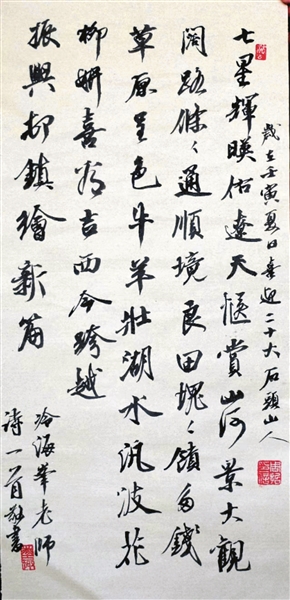 七星輝暎佑遼天愜賞山河景大觀
闊路條々通順境良田塊々饋多錢
草原呈色牛羊壯湖水汎波花
柳妍喜看吉西今跨越
振興柳鎮繪新篇
歲在壬寅夏日喜迎二十大石頭山人
冷海峯老師
詩一首敬書